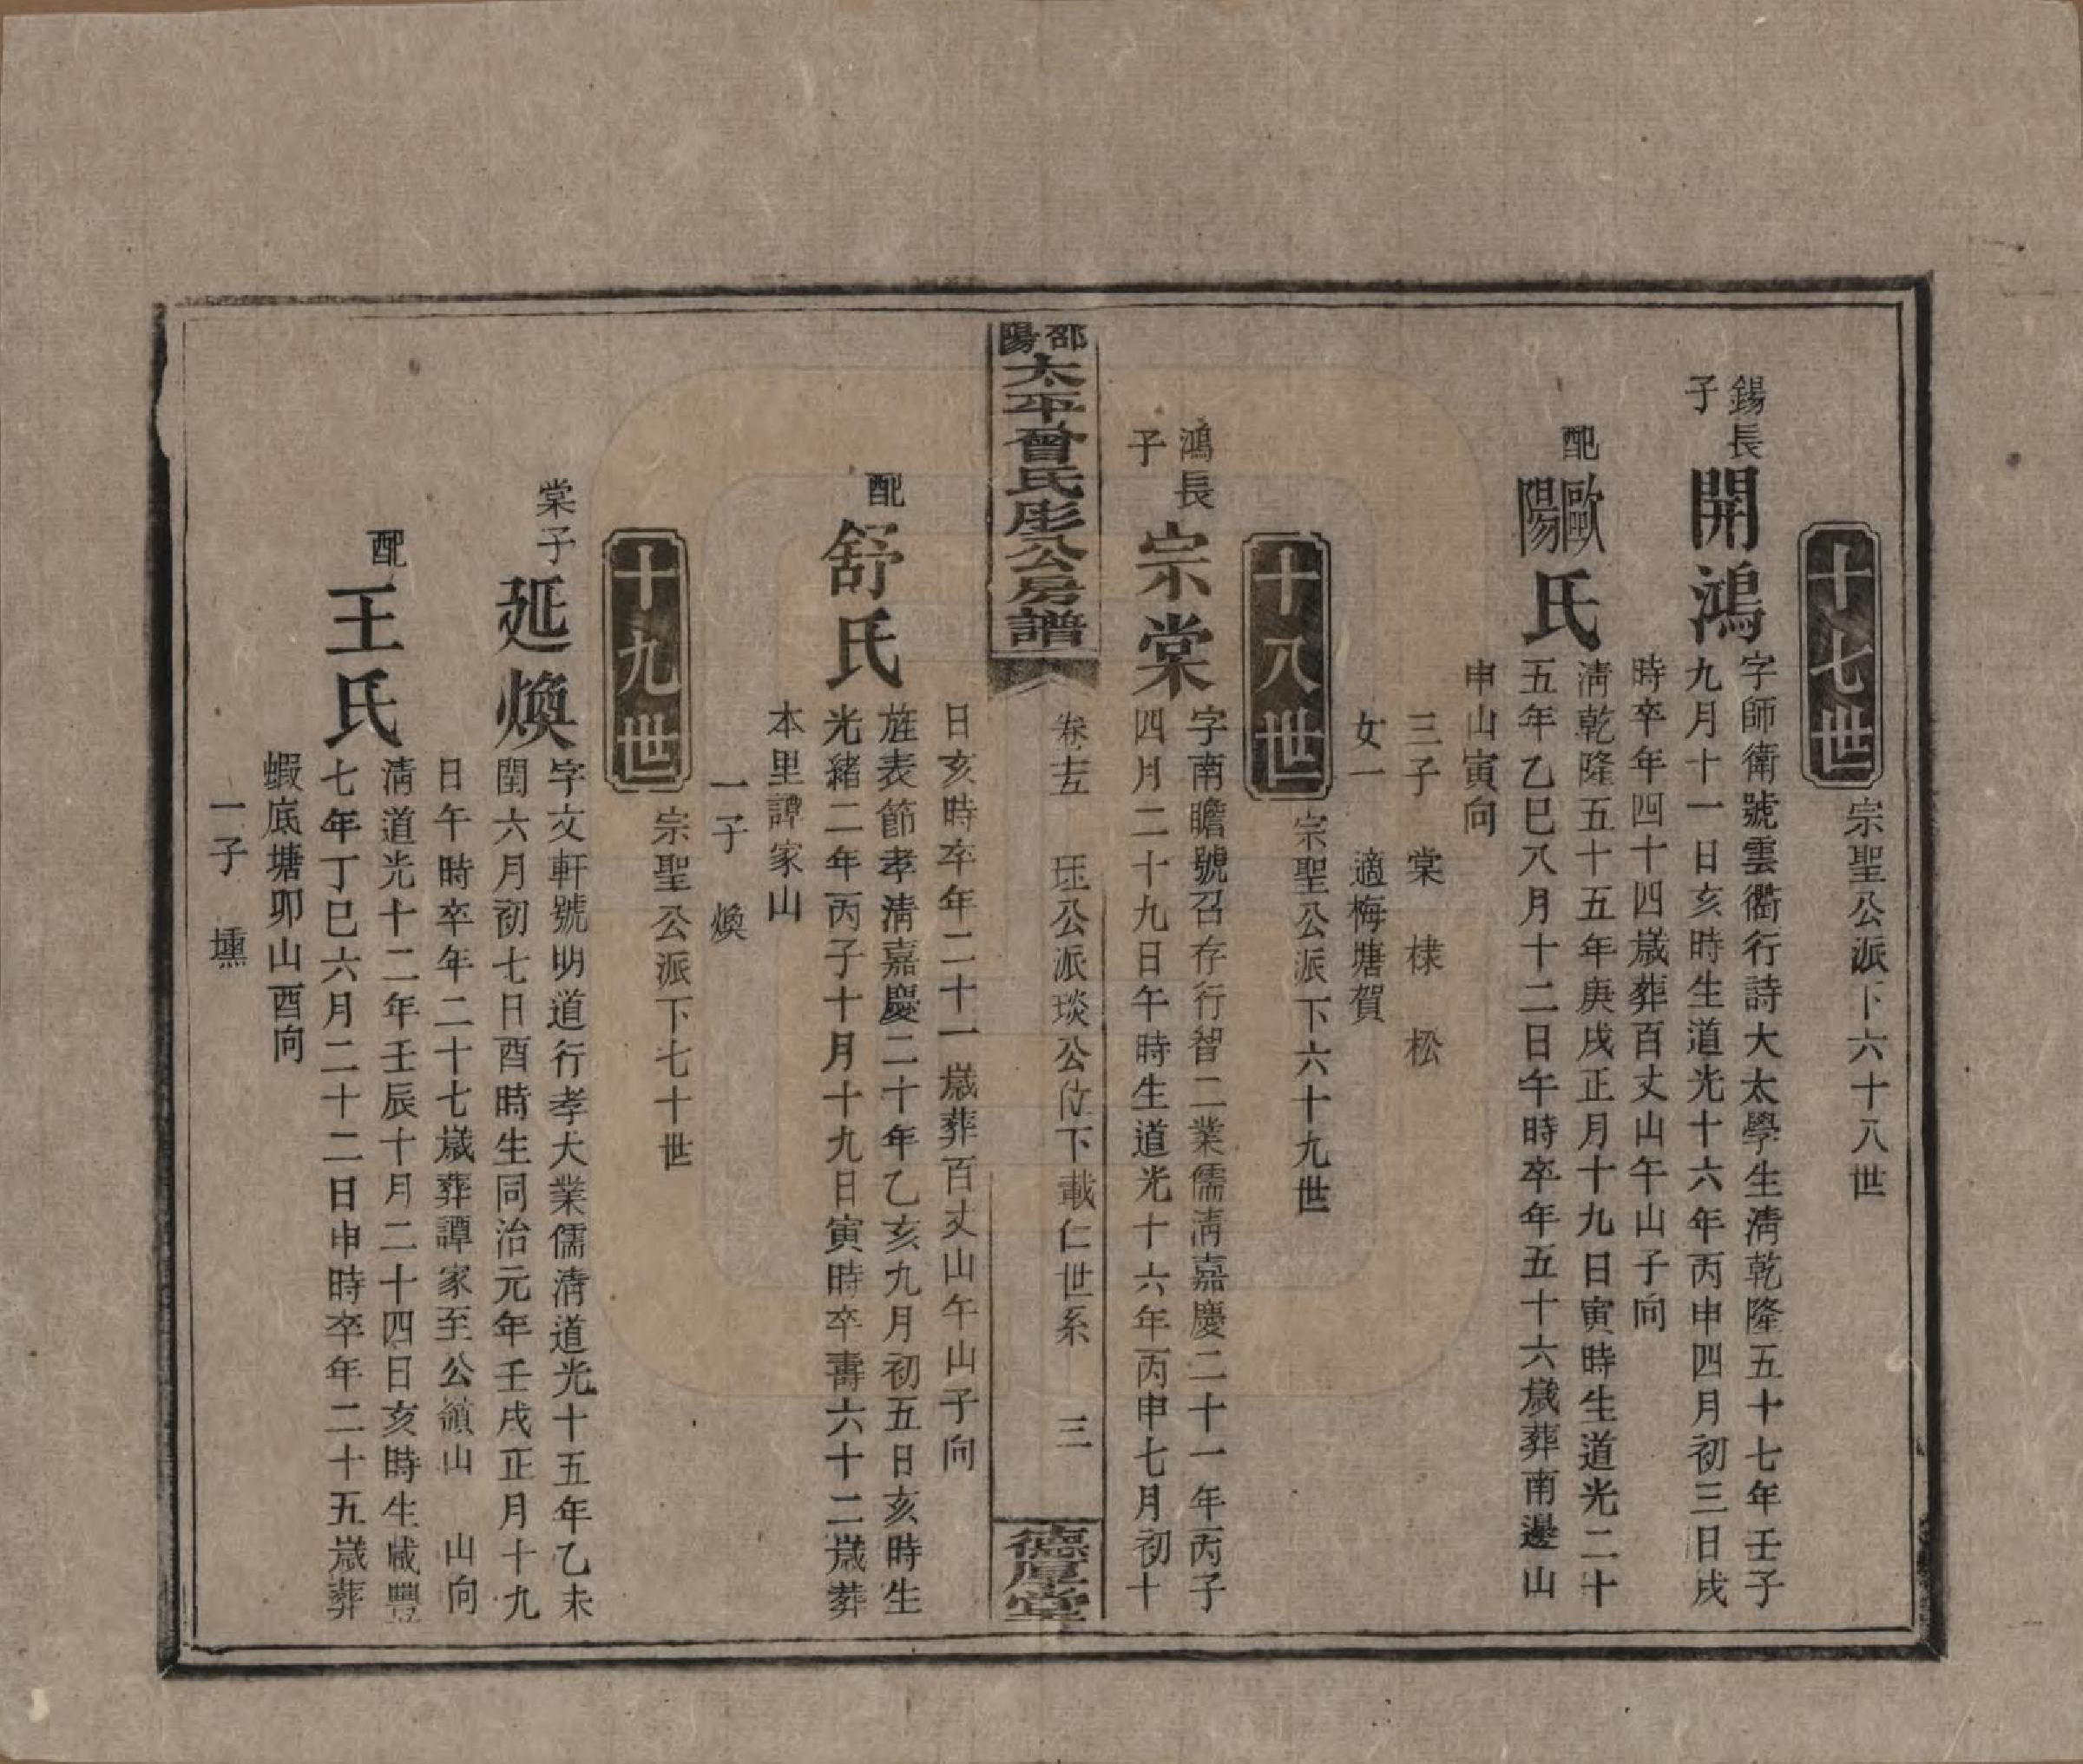 十七世
宗聖公派下六十八世
錫長子
開鴻
字師衛號雲衢行詩大太學生淸乾隆五十七年壬子
九月十一日亥時生道光十六年丙申四月初三日戌
時卒年四十四歲葬百丈山午山子向
配
歐陽氏
淸乾隆五十五年庚戌正月十九日寅時生道光二十
五年乙巳八月十二日午時卒年五十六歲葬南邊山
申山寅向
三子 棠 棣 松
女一 適梅塘賀
十八世
宗聖公派下六十九世
鴻長子
宗棠
字南瞻號召存行智二業儒淸嘉慶二十一年丙子
四月二十九日午時生道光十六年丙申七月初十
邵陽太平曾氏彤公房譜
卷十五 珏公派琰公位下載仁世系 三
德厚堂
日亥時卒年二十一歲葬百丈山午山子向
配
舒氏
旌表節孝淸嘉慶二十年乙亥九月初五日亥時生
光緒二年丙子十月十九日寅時卒壽六十二歲葬
本里譚家山
一子 煥
十九世
宗聖公派下七十世
棠子
延煥
字文軒號明道行孝大業儒淸道光十五年乙未
閏六月初七日酉時生同治元年壬戌正月十九
日午時卒年二十七歲葬譚家至公嶺山 山向
配
王氏
淸道光十二年壬辰十月二十四日亥時生咸豐
七年丁巳六月二十二日申時卒年二十五歲葬
蝦底塘卯山酉向
一子 壎